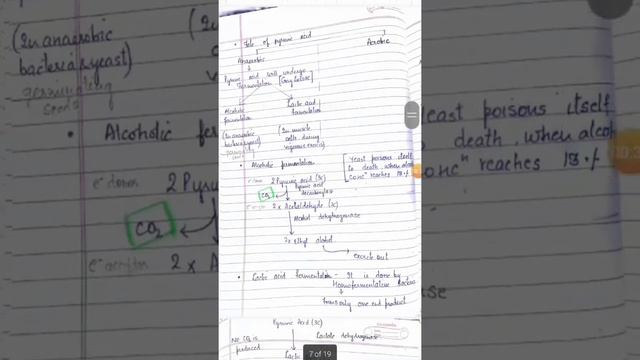 • Fate of Pyruvic acid
Anaerobic
Aerobic
Pyruvic acid will undergo
fermentation [Cytoplasm]
Alcoholic
fermentation
(In anaerobic
bacteria, yeast)
germinating
seeds
Lactic acid
fermentation
(In muscle
cells during
vigorous exercise)
• Alcoholic fermentation
[Yeast poisons itself
to death, when alcohol
concⁿ reaches 13 %
e⁻ donor 2 Pyruvic acid (3C)
CO₂
Pyruvic acid
decarboxylase
2 x Acetaldehyde (2C)
Alcohol dehydrogenase
2 x Ethyl alcohol
excrete out
• Lactic acid fermentation - It is done by
Homofermentative Bacteria
forms only one end product
Pyruvic Acid (3C)
NO CO₂ is
produced
Lactate dehydrogenase
Lactic
7 of 19
(In anaerobic
bacteria, yeast)
germinating
seeds
• Alcoholic fer
e⁻ donor 2 Pyru
CO₂
e⁻ acceptor 2 x A
yeast poisons itself
death, when alcoh
concⁿ reaches 13 %